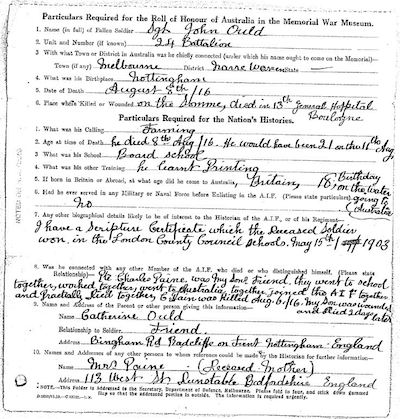 Particulars Required for the Roll of Honour of Australia in the Memorial War Museum.
1. Name (in full) of Fallen Soldier Sgt John Ould
2. Unit and Number (if known) 24 Battalion
3. With what Town or District in Australia was he chiefly connected (under which his name ought to come on the Memorial)—
Town (if any) Melbourne District Narre Warren State —
4. What was his Birthplace Nottingham
5. Date of Death August 8th /16
6. Place where Killed or Wounded on the Somme, died in 13th General Hospital
Boulogne
Particulars Required for the Nation's Histories.
1. What was his Calling Farming
2. Age at time of Death he died 8th Aug /16. He would have been 21 on the 11th Aug
3. What was his School Board school Birthday
4. What was his other Training he learnt Printing
5. If born in Britain or Abroad, at what age did he come to Australia Britain, 16, on the water
going to
Australia
6. Had he ever served in any Military or Naval Force before Enlisting in the A.I.F. (Please state particulars)
No
7. Any other biographical details likely to be of interest to the Historian of the A.I.F., or of his Regiment—
I have a Scripture Certificate which the Deceased Soldier
won, in the London County Council Schools. May 15th 1903
8. Was he connected with any other Member of the A.I.F. who died or who distinguished himself. (Please state
Relationship)— Pte Charles Paine, was my Sons Friend, they went to school
together, worked together, went to Australia, together joined the A I F together
and practially died together, C Pain was killed Aug. 6./16. My Son was wounded
and died 2 days later
9. Name and Address of Parent or other person giving this information—
Name Catherine Ould
Relationship to Soldier Friend
Address Bingham Rd Radcliffe on Trent Nottingham England
10. Names and Addresses of any other persons to whom reference could be made by the Historian for further information—
Name Mrs Paine (Deceased Mother)
Address 113 West St Dunstable Bedfordshire England
NOTE.—This Folder is Addressed to the Secretary, Department of Defence, Melbourne. Please fold in four, and stick down gummed
flap so that the addressed portion is outside. The information is required urgently.